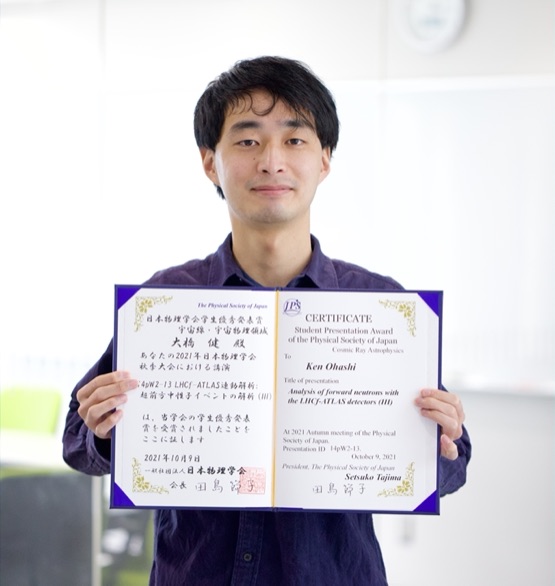 The Physical Society of Japan
日本物理学会学生優秀発表賞
宇宙線・宇宙物理領域
大橋 健 殿
あなたの2021年日本物理学会
秋季大会における講演
14pW2-13 LHCf-ATLAS連動解析:
超前方中性子イベントの解析(III)
は、当学会の学生優秀発表
賞を受賞されましたことを
ここに証します
2021年10月9日
一般社団法人日本物理学会
会長 田島節子
JPS
CERTIFICATE
Student Presentation Award
of the Physical Society of Japan
Cosmic Ray Astrophysics
To
Ken Ohashi
Title of presentation
Analysis of forward neutrons with
the LHCf-ATLAS detectors (III)
At 2021 Autumn meeting of the Physical
Society of Japan,
Presentation ID 14pW2-13,
October 9, 2021
President, The Physical Society of Japan
Setsuko Tajima
田島節子